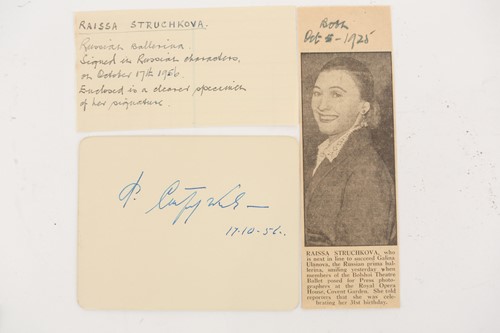 RAISSA STRUCHKOVA.
Russian Ballerina
Signed in Russian characters,
on October 17th 1956.
Enclosed is a clearer specimen
of her signature.
Born
Oct 5-1925
17-10-56.
RAISSA STRUCHKOVA, who
is next in line to succeed Galina
Ulanova, the Russian prima bal-
lerina, smiling yesterday when
members of the Bolshoi Theatre
Ballet posed for Press photo-
graphers at the Royal Opera
House, Covent Garden. She told
reporters that she was cele-
brating her 31st birthday.